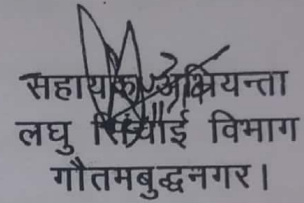 सहायक अभियन्ता
लघु सिंचाई विभाग
गौतमबुद्धनगर।